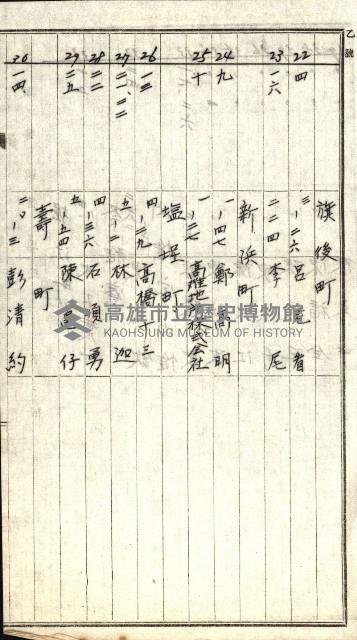 乙號
旗後町
22 四 三-二六 呂尾省
23 一六 二二四 李尾
新浜町
24 九 一-四七 鄭向明
25 十 一-二七 高雄地所株式会社
塩埕町
26 一三 四-二九 高橋三
27 二一、二二 五-二 林迦
28 二二 四-三六 石須勇
29 二五 五-五四 陳仔
壽町
30 一四 二〇-三 彭清約
高雄市立歷史博物館
KAOHSIUNG MUSEUM OF HISTORY